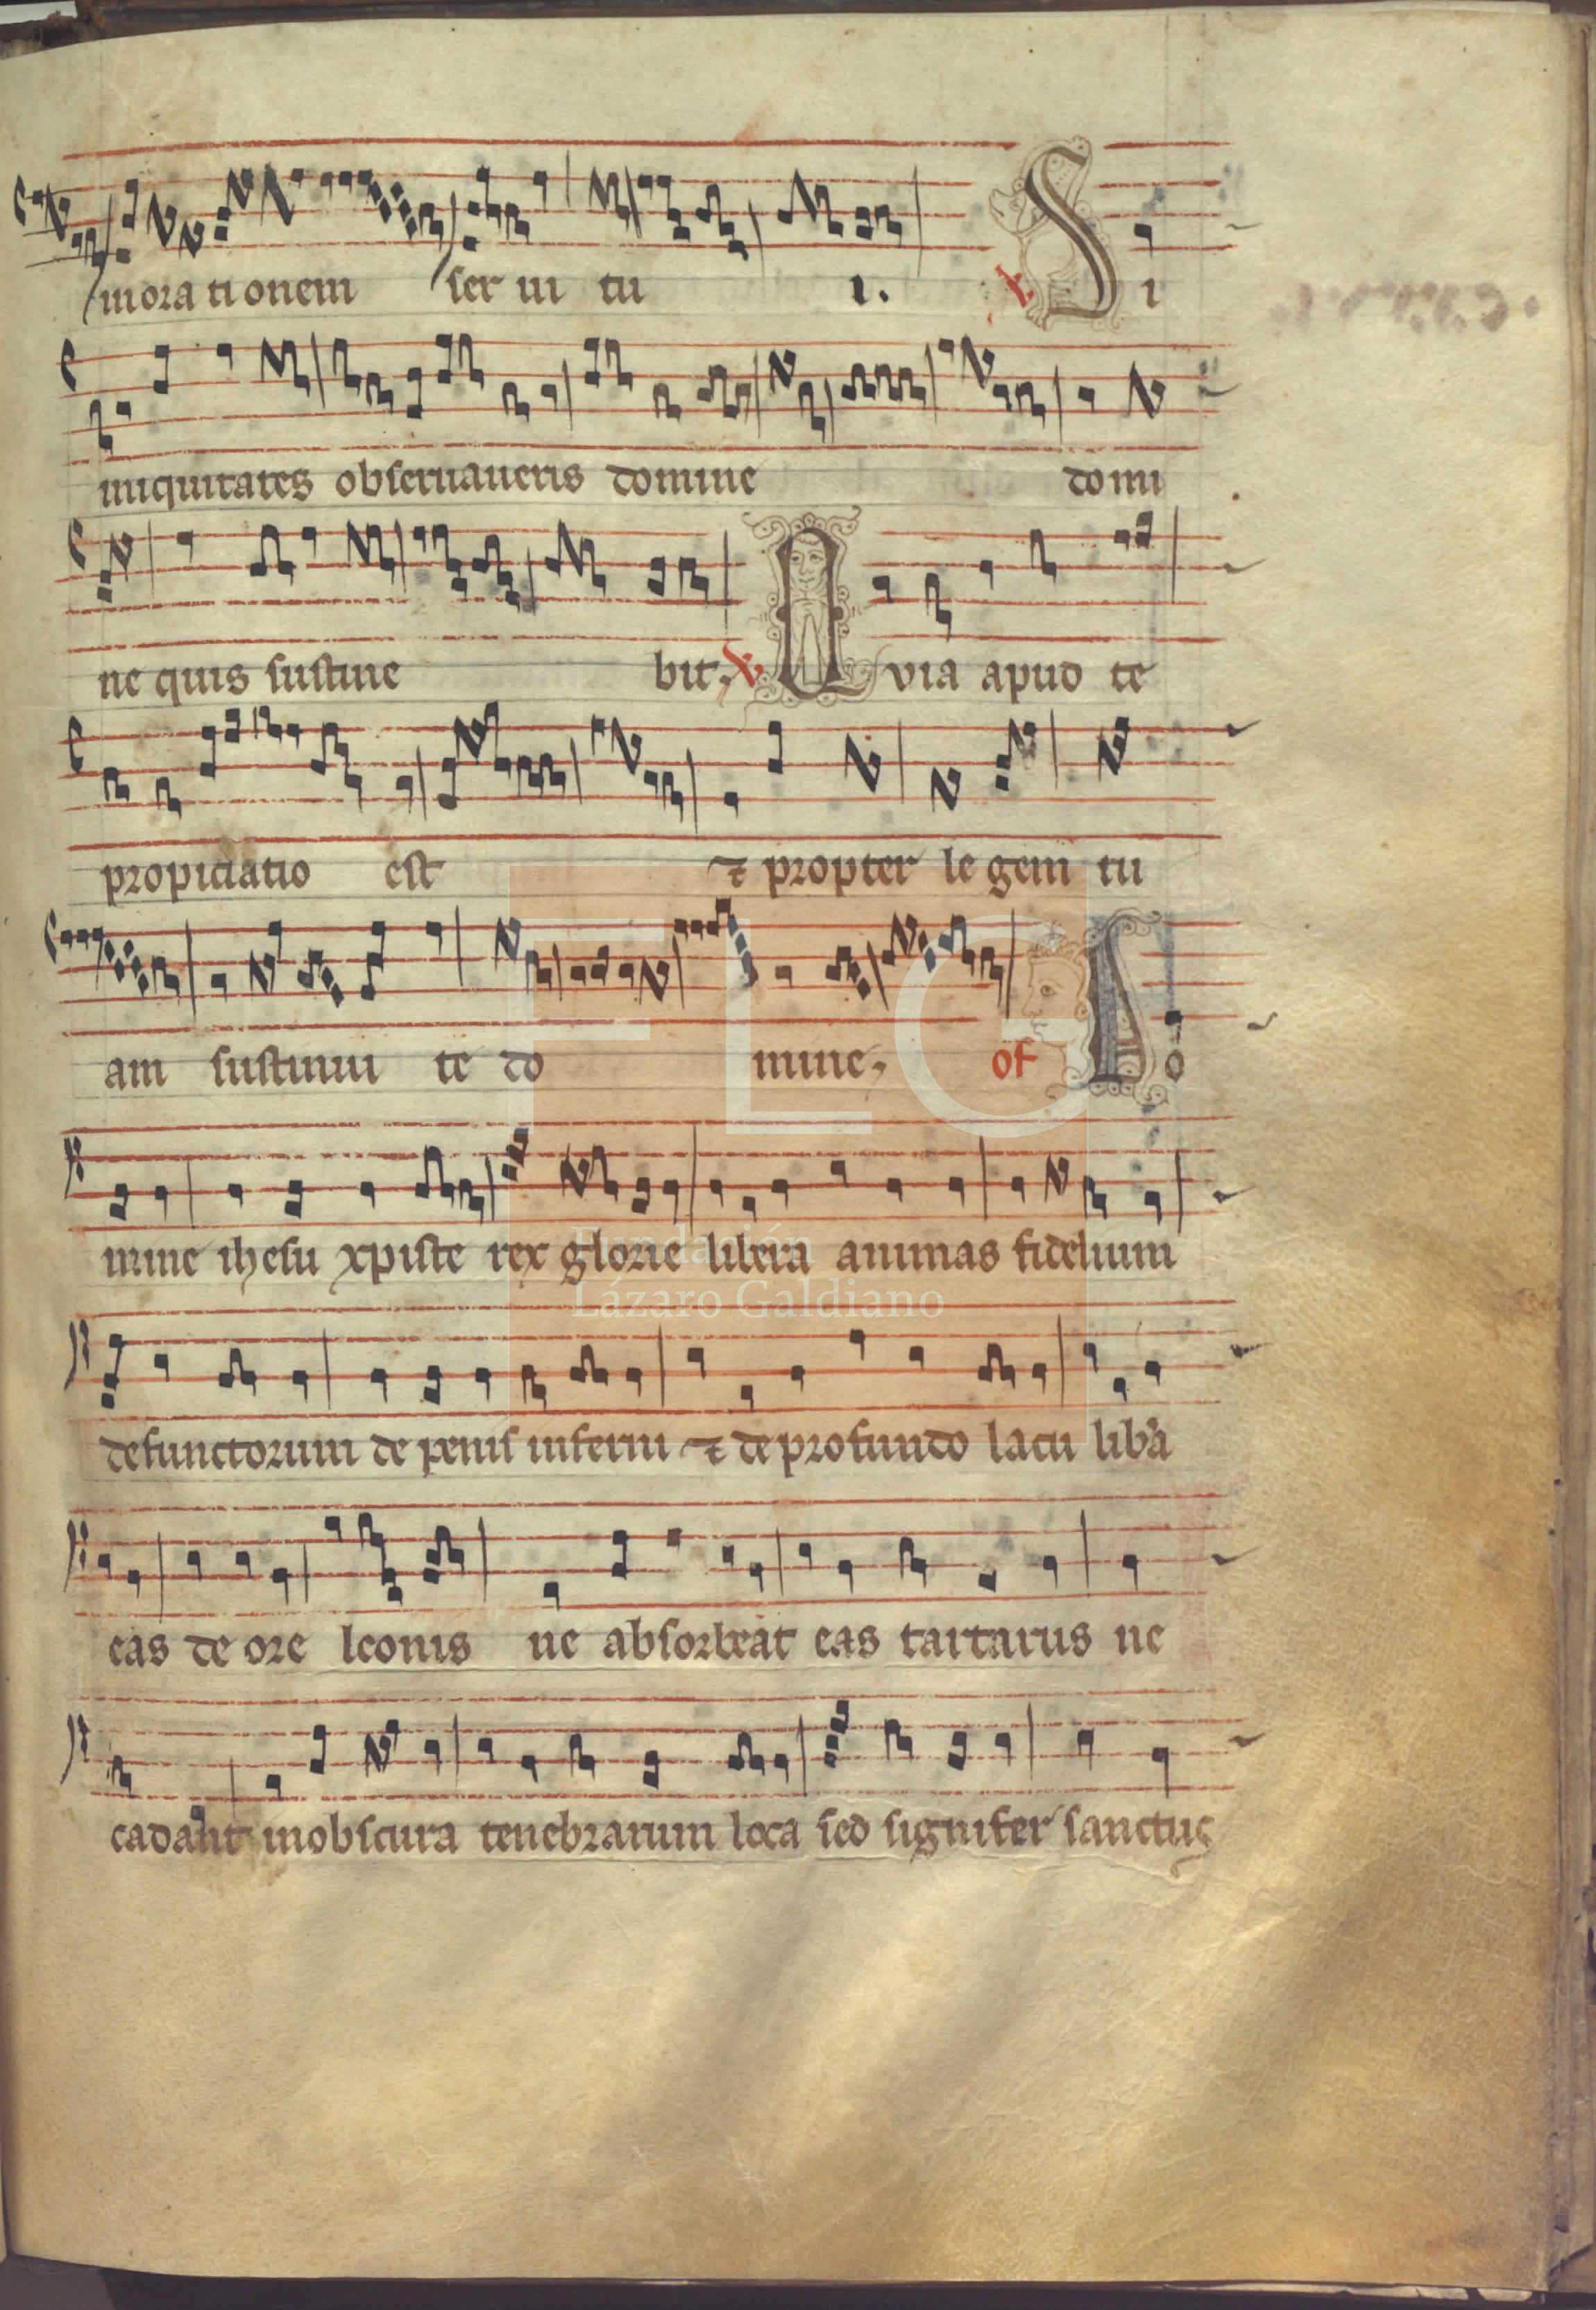 mora ti onem ser ui tu i. V Si
iniquitates obseruaueris domine domi
ne quis sustine bit. V Quia apud te
propiciatio est ⁊ propter le gem tu
am sustinui te do mine. of Do
mine ihesu xpiste rex glorie libera animas fidelium
defunctorum de penis inferni ⁊ de profundo lacu liba
eas de ore leonis ne absorbeat eas tartarus ne
cadant inobscura tenebrarum loca sed signifer sanctus
FLG
Fundación
Lázaro Galdiano